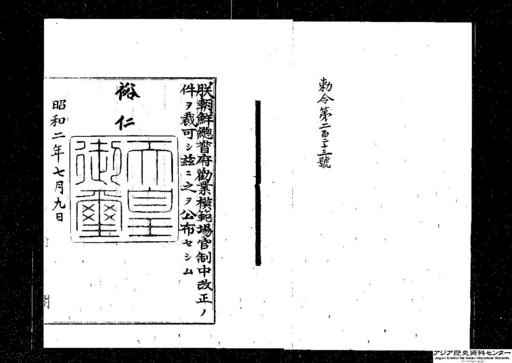 勅令第二百二十三號
朕朝鮮總督府勸業模範場官制中改正ノ
件ヲ裁可シ茲ニ之ヲ公布セシム
裕仁
天皇御璽
昭和二年七月九日
アジア歴史資料センター
Japan Center for Asian Historical Records